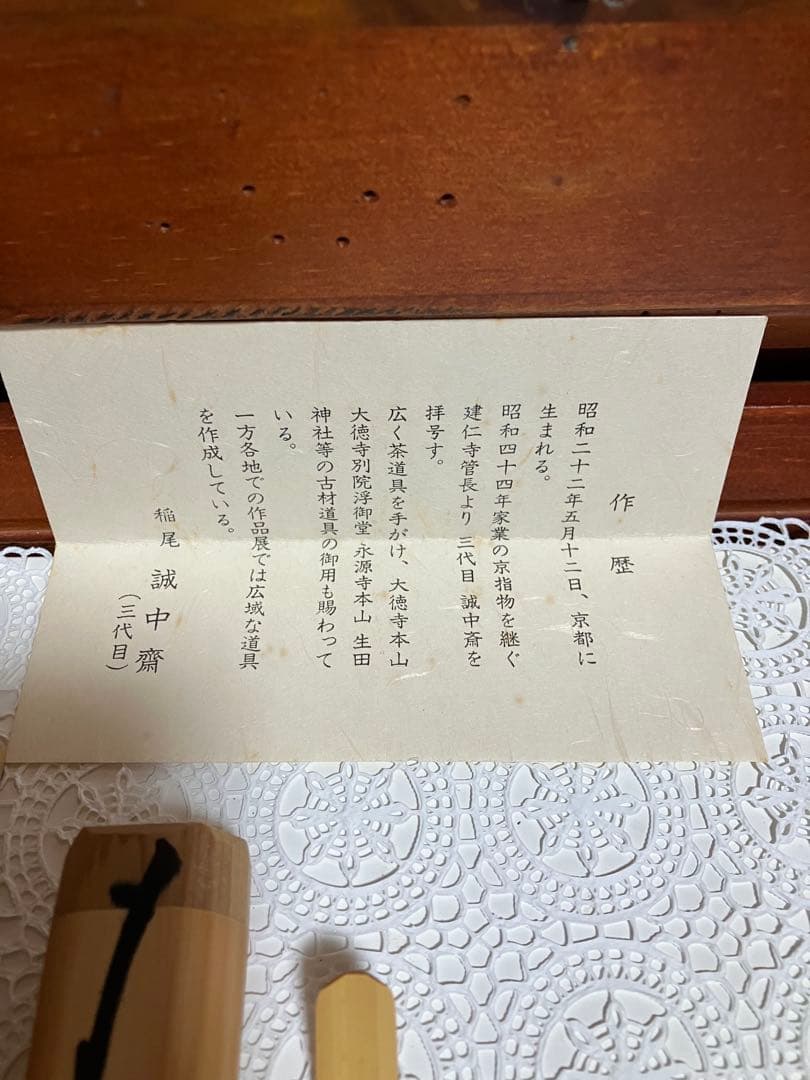 作歴
昭和二十二年五月十二日、京都に
生まれる。
昭和四十四年家業の京指物を継ぐ
建仁寺管長より 三代目 誠中斎を
拝号す。
広く茶道具を手がけ、大徳寺本山
大徳寺別院浮御堂 永源寺本山 生田
神社等の古材道具の御用も賜わって
いる。
一方各地での作品展では広域な道具
を作成している。
稲尾 誠中齋
(三代目)